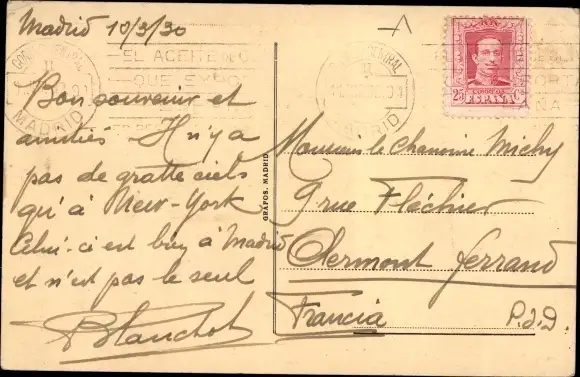 Madrid 10/3/30
Bon souvenir et
amitiés Il n'y a
pas de gratte ciels
qu'à New-York
Celui-ci est bien à Madrid
et n'est pas le seul
Blanchot
GRAFOS. MADRID
CORREOS
25 Cs
ESPAÑA
MADRID
EL ACEITE DE
QUE
Monsieur le Chanoine Michy
9 rue Fléchier
Clermont ferrand
Francia
P.d.D.